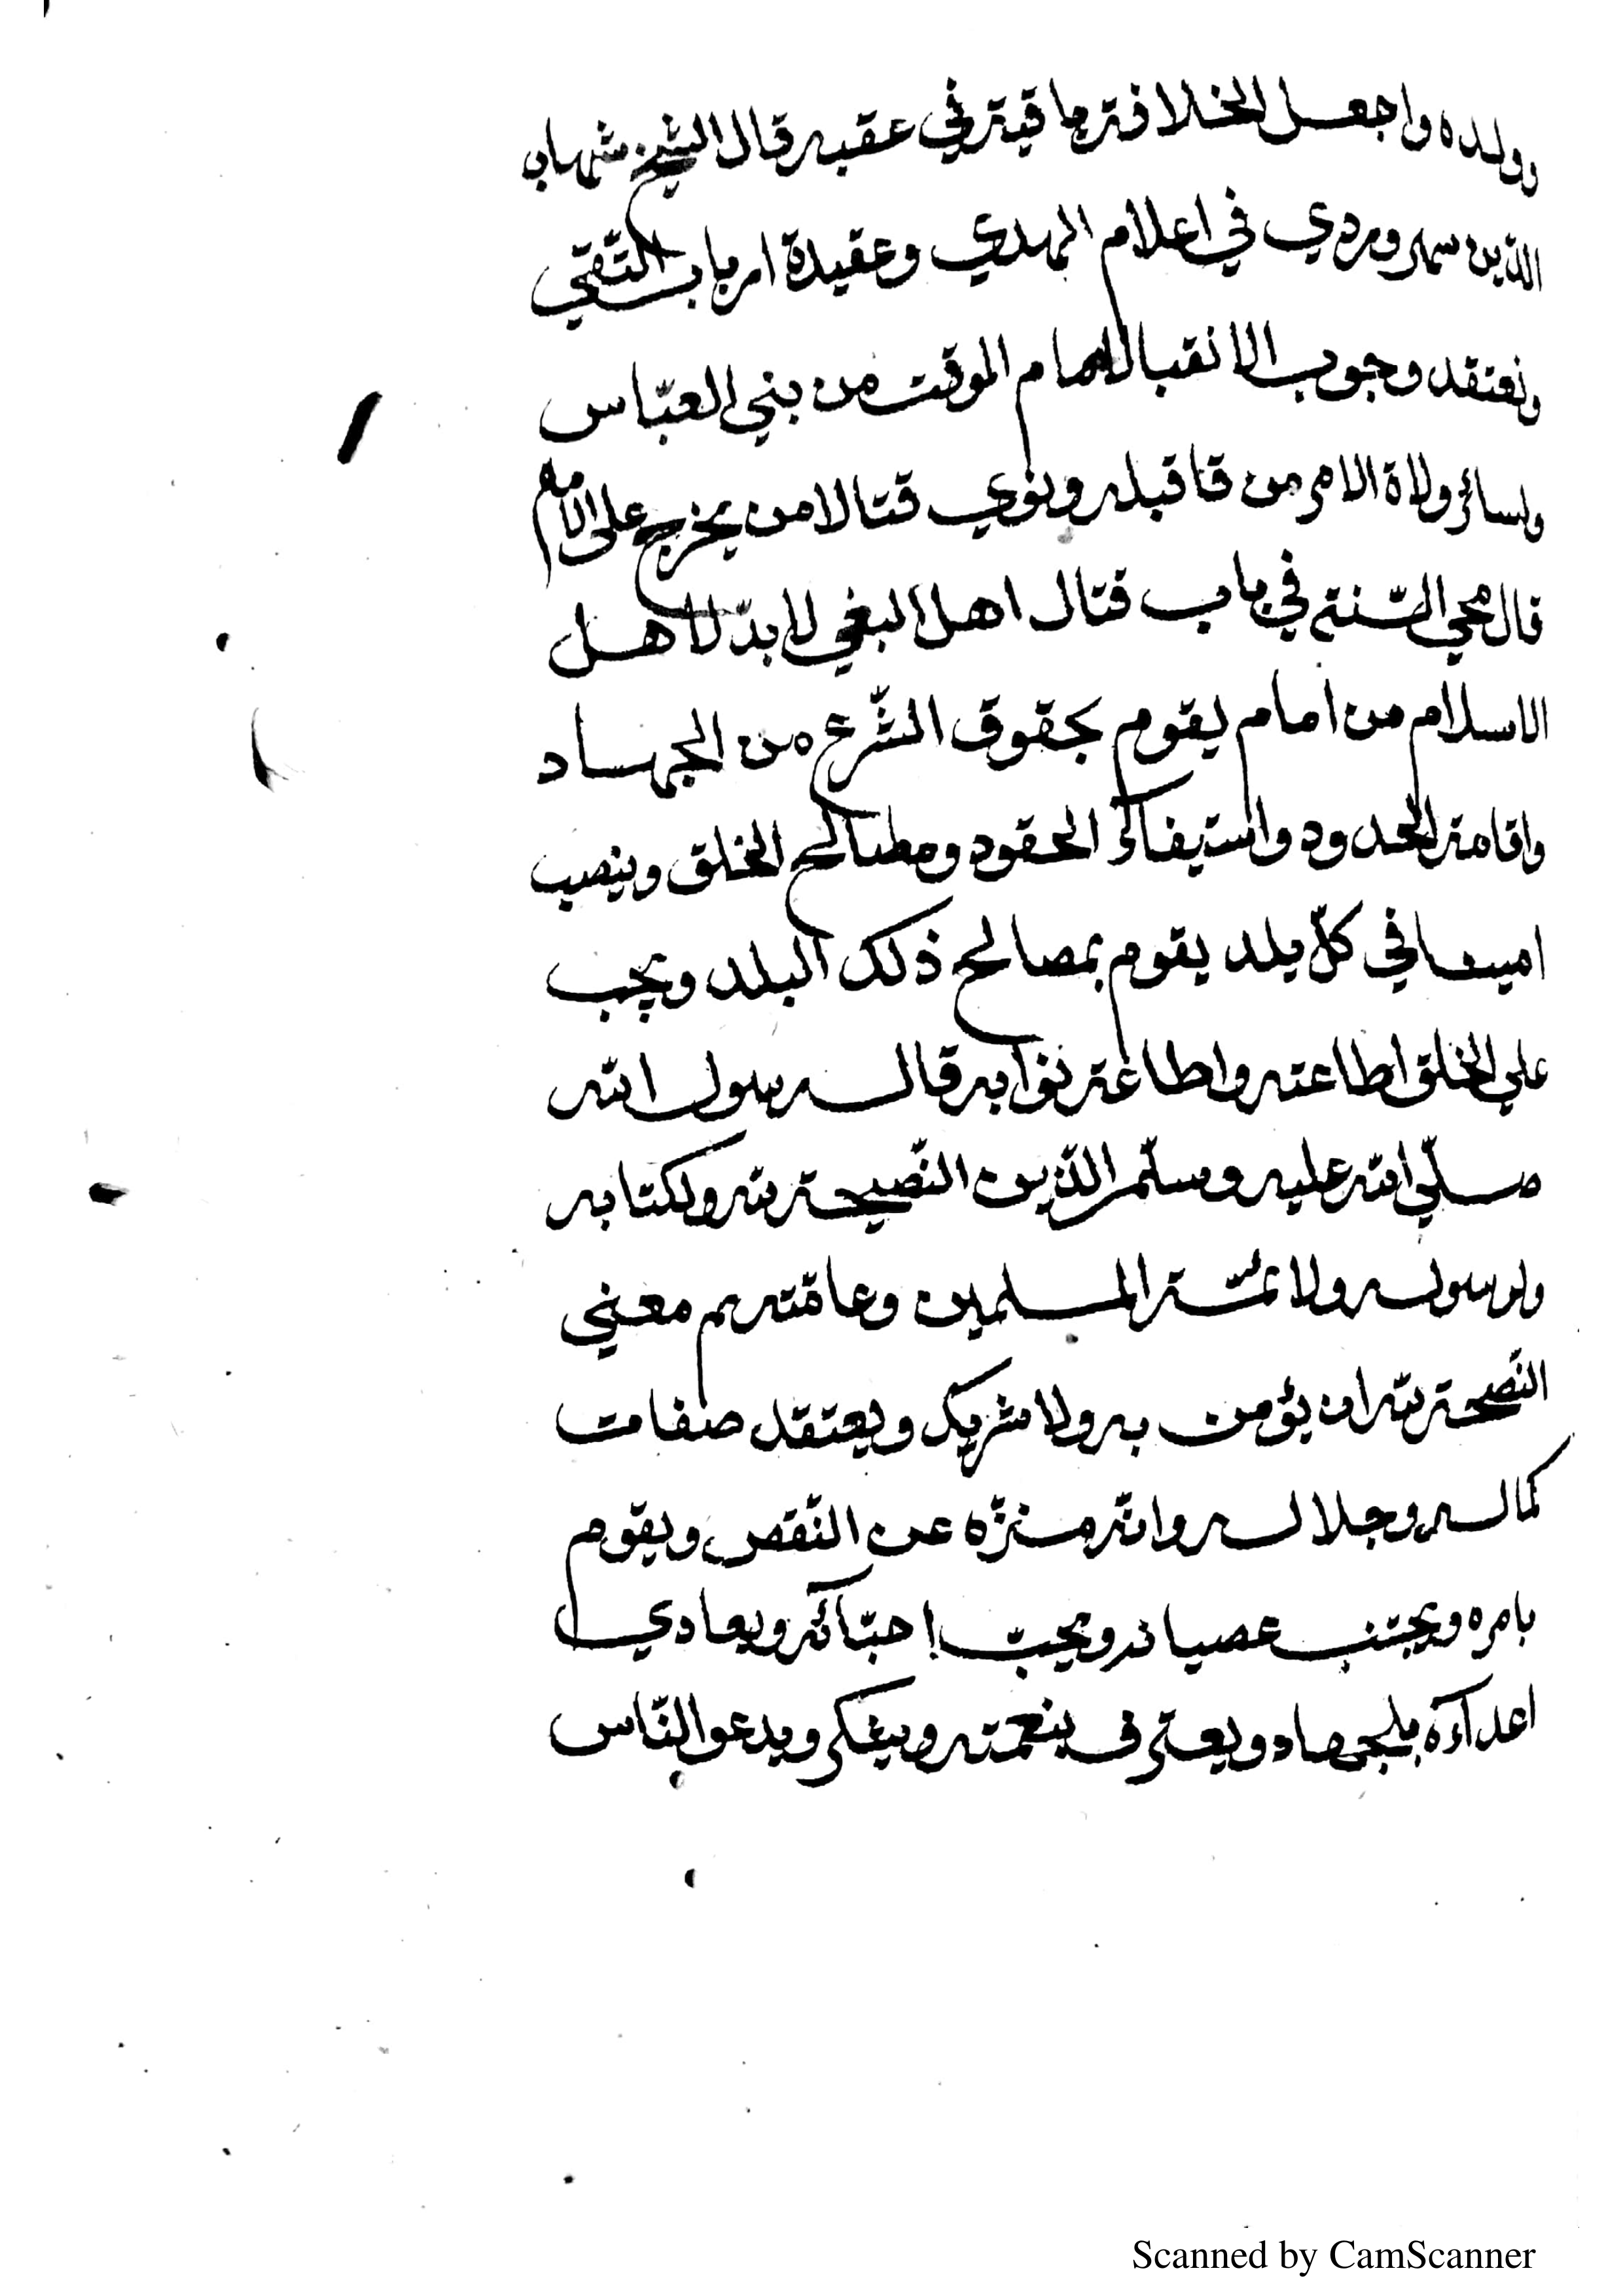 وولده واجعل الخلافة باقية في عقبه قال الشيخ شهاب
الدين سهروردي في اعلام الهدي وعقيدة ارباب التقي
ونعتقد وجوب الانقياد لامام الوقت من بني العبّاس
ولسائر ولاة الامر من قبله ونوي قتال من يخرج علي الامام
قال محي السّنة في باب قتال اهل البغي لا بدّ لاهل
الاسلام من امام يقوم بحقوق الشّرع من الجهاد
واقامة الحدود واستيفاء الحقود ومطالح الخلق وينصب
امينا في كلّ بلد يقوم بمصالح ذلك البلد ويجب
علي الخلق اطاعته واطاعة نوابه قال رسول الله
صلّي الله عليه وسلّم الدّين النّصيحة لله ولكتابه
ولرسوله ولائمّة المسلمين وعامّتهم معني
النّصحة لله ان يؤمن به ولا شريك ويعتقد صفات
كماله وجلاله وانّه منزّه عن النّقص ويقوم
بامره ويجتنب عصيانه ويحبّ احبّائه ويعادي
اعداءه بالجهاد ويعترف بنعمته ويشكر ويدعو النّاس
Scanned by CamScanner